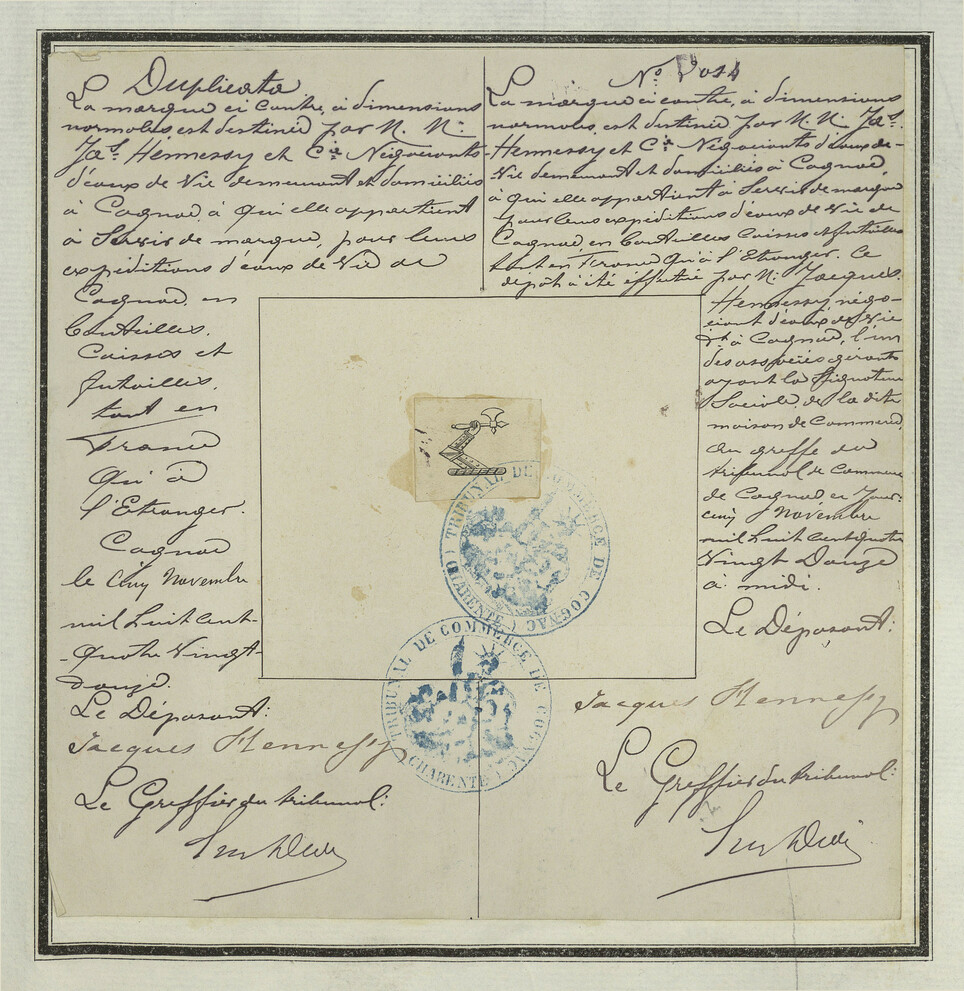 Duplicata
La marque ci contre, à dimensions
normales, est destinée par M. M.
Jas. Hennessy et Cie Négociants
d'eaux de Vie demeurant et domiciliés
à Cognac, à qui elle appartient
à Servir de marque, pour leurs
expéditions d'eaux de Vie de
Cognac, en
bouteilles,
Caisses et
futailles,
tant en
France
Qu'à
l'Etranger.
Cognac
le Cinq Novembre
mil huit cent-
-Quatre Vingt-
douze.
Le Déposant:
Jacques Hennessy
Le Greffier du tribunal:
No 014
La marque ci contre, à dimensions
normales, est destinée par M. M. Jas.
Hennessy et Cie Négociants d'eaux de-
Vie demeurant et domiciliés à Cognac,
à qui elle appartient à Servir de marque
pour leurs expéditions d'eaux de Vie de
Cognac, en bouteilles Caisses et futailles
tant en France Qu'à l'Etranger. Ce
dépôt à été effectué par M. Jacques
Hennessy, négo-
ciant d'eaux de Vie
dt à Cognac, l'un
des associés gérants
ayant la Signature
Sociale de la dite
maison de Commerce,
au greffe du
tribunal de Commerce
de Cognac, ce Jour:
cinq Novembre
mil huit cent quatre
Vingt Douze
à midi.
Le Déposant:
Jacques Hennessy
Le Greffier du tribunal:
TRIBUNAL DE COMMERCE DE COGNAC (CHARENTE)
TRIBUNAL DE COMMERCE DE COGNAC (CHARENTE)